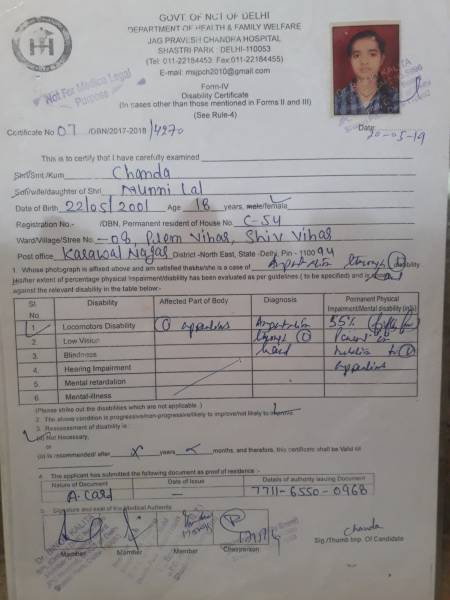 GOVT. OF NCT OF DELHI
DEPARTMENT OF HEALTH & FAMILY WELFARE
JAG PRAVESH CHANDRA HOSPITAL
SHASTRI PARK : DELHI-110053
(Tel: 011-22184453 Fax:011-22184455)
E-mail: msjpch2010@gmail.com
Not For Medico Legal
Purpose
Form-IV
Disability Certificate
(In cases other than those mentioned in Forms II and III)
(See Rule-4)
Certificate No 07 /DBN/2017-2018/4270
Date: 20-05-19
This is to certify that I have carefully examined
Shri/Smt./Kum Chanda
Son/wife/daughter of Shri Munni Lal
Date of Birth 22/05/2001 Age 18 years, male/female
Registration No.- /DBN, Permanent resident of House No. C-54
Ward/Village/Stree No. -08, Prem Vihar, Shiv Vihar
Post office Karawal Nagar District -North East, State -Delhi, Pin - 110094
1. Whose photograph is affixed above and am satisfied that he/she is a case of disability
His/her extent of percentage physical impairment/disability has been evaluated as per guidelines ( to be specified) and is
against the relevant disability in the table below:-
Sl. No Disability Affected Part of Body Diagnosis Permanent Physical Impairment/Mental disability (in%)
1. Locomotors Disability 55%
2. Low Vision
3. Blindness hand
4. Hearing Impairment
5. Mental retardation
6. Mental-illness
(Please strike out the disabilities which are not applicable.)
2. The above condition is progressive/non-progressive/likely to improve/not likely to improve.
3. Reassessment of disability is :
(i) Not Necessary,
or
(ii) is recommended/ after x years x months, and therefore, this certificate shall be Valid till
4. The applicant has submitted the following document as proof of residence :-
Nature of Document Date of Issue Details of authority issuing Document
A. Card — 7711-6550-0968
5. Signature and seal of the Medical Authority.
Member Member Member Chairperson
Chanda
Sig./Thumb Imp. Of Candidate